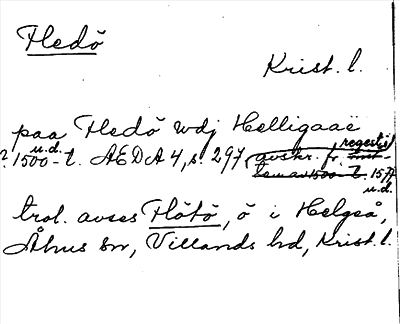 Fledö
Krist. l.
paa Fledö wdj Helligaaë
? u.d. 1500-t. AEDA 4, s. 297 (avskr. fr. regest i
1577 u.d.
trol. avses Flötö, ö i Helgeå,
Åhus sn, Villands hd, Krist. l.